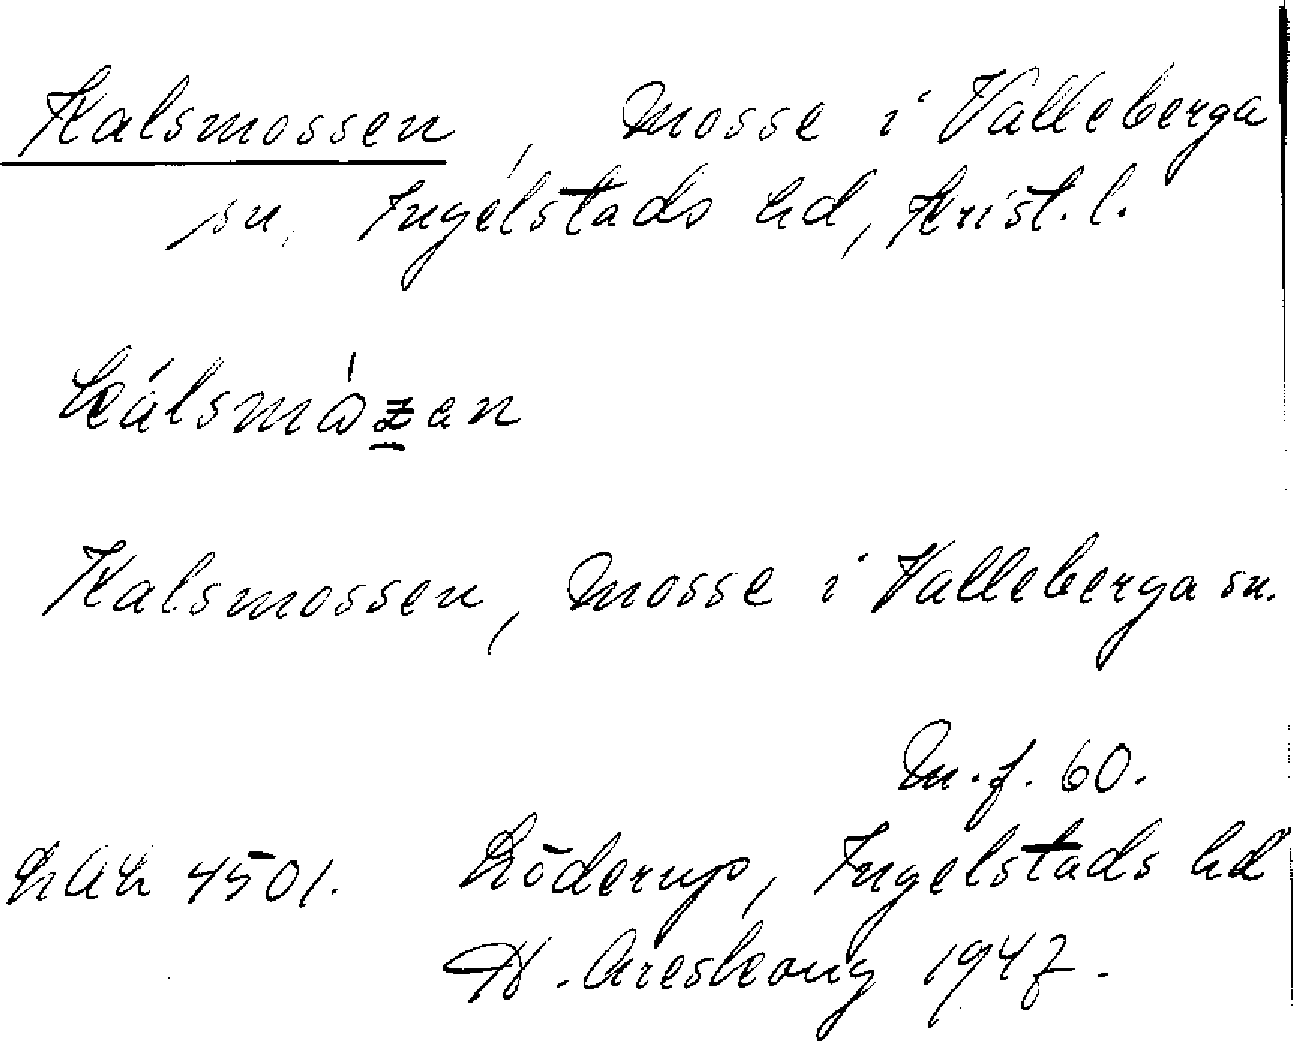 Kalsmossen, mosse i Valleberga
sn, Ingelstads hd, Krist. l.
kálsmåzan
Kalsmossen, mosse i Valleberga sn.
M.f. 60.
LAL 4501. Löderup, Ingelstads hd
H. Areskoug 1947.